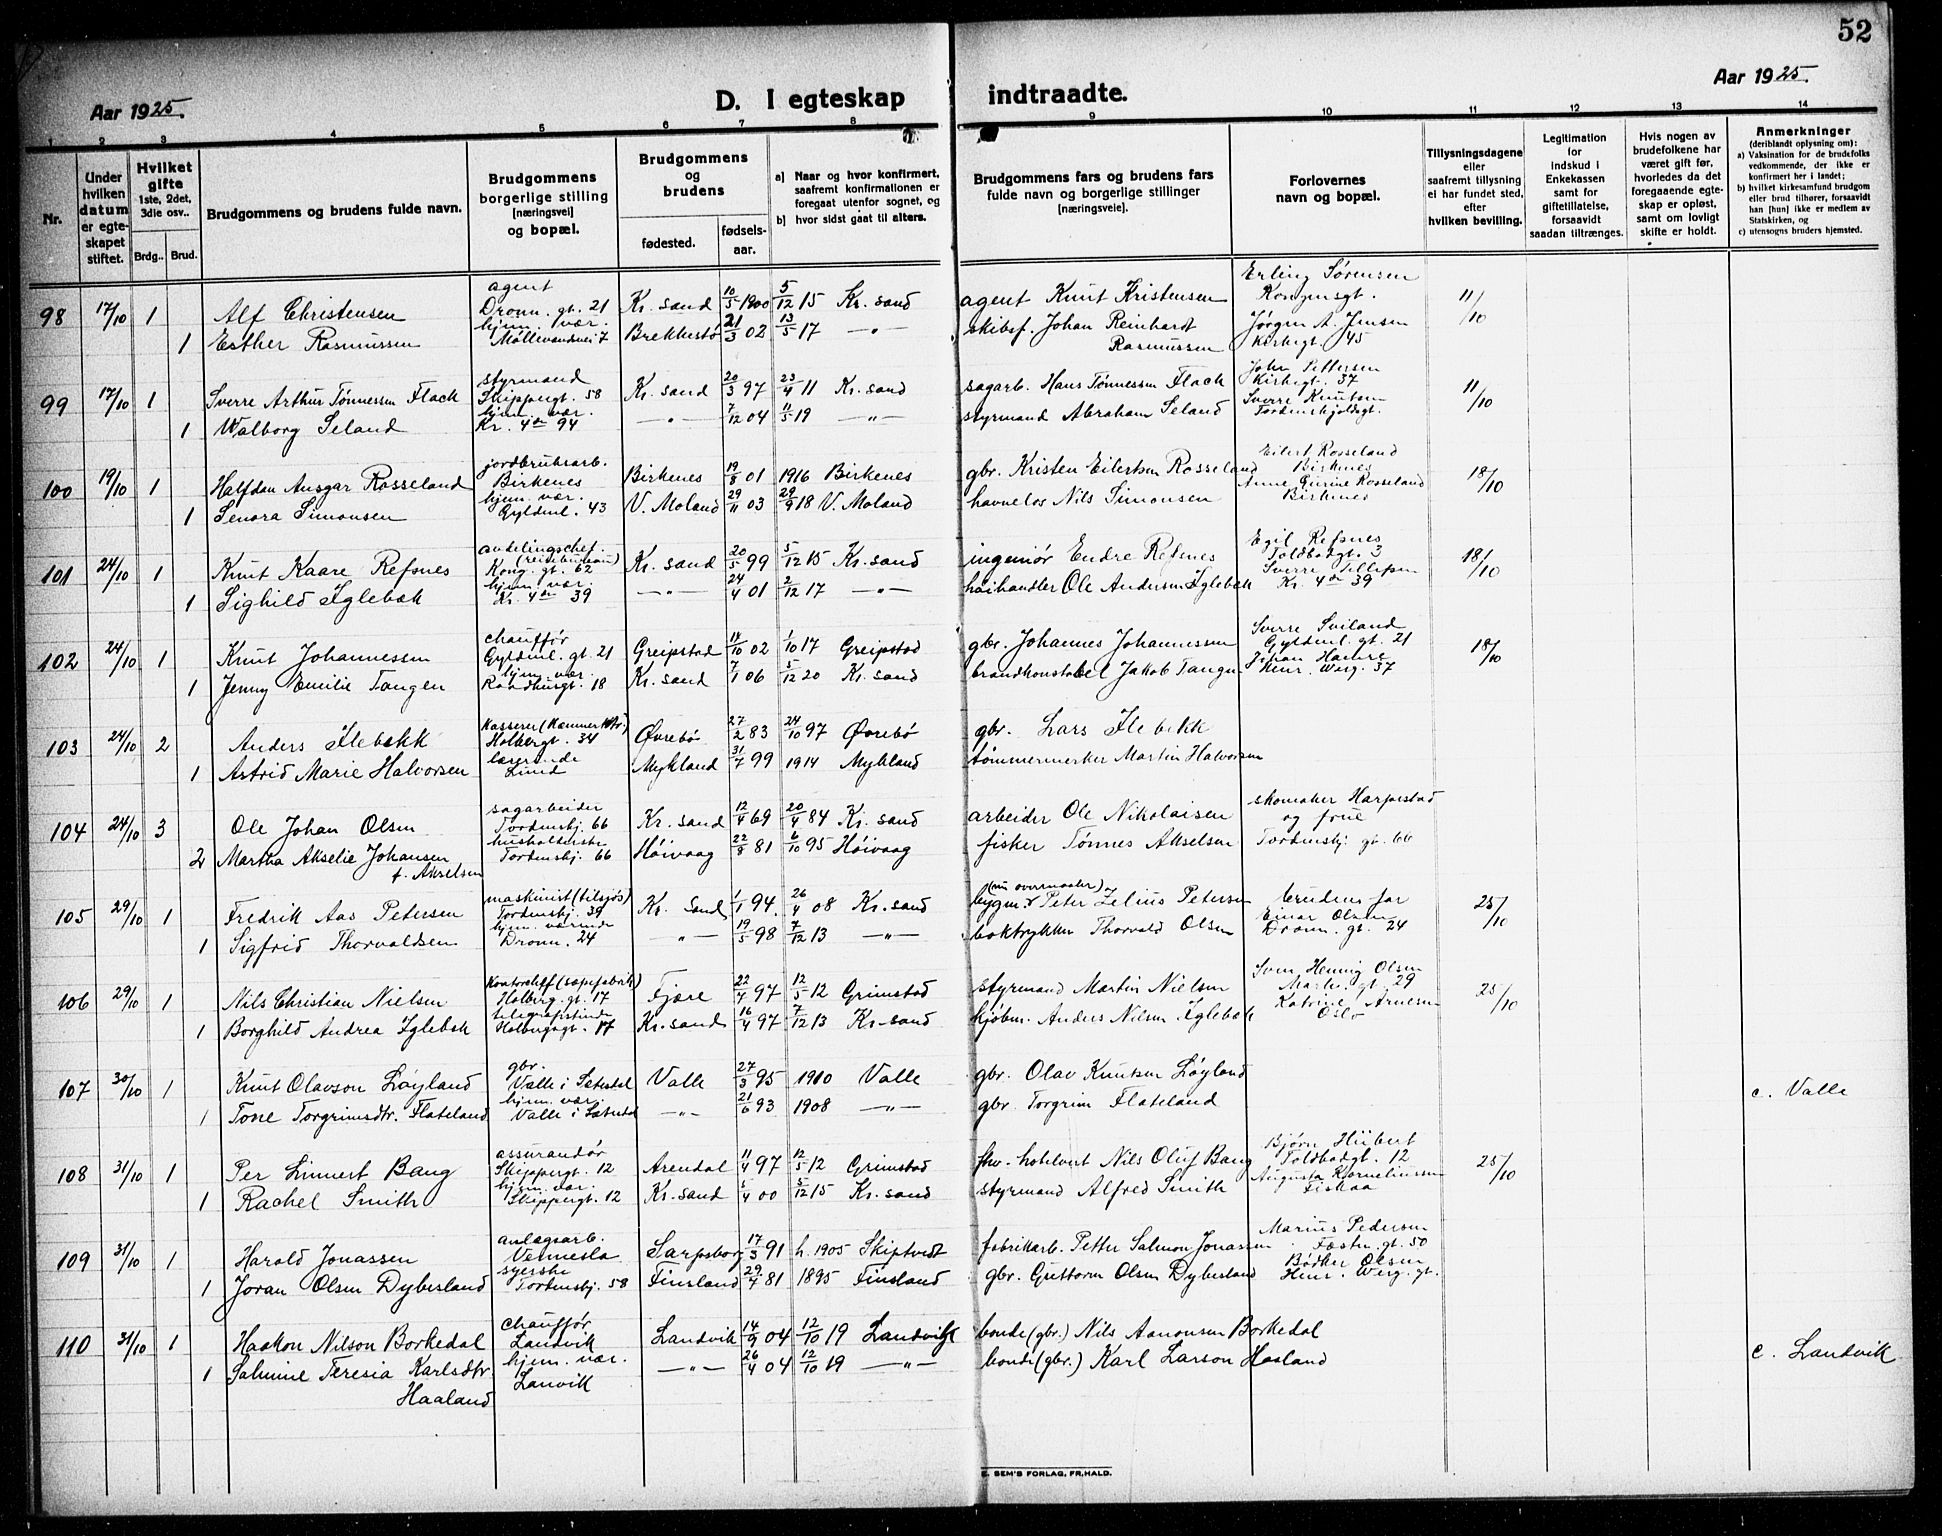 52
Aar 1925.
D. I egteskap indtraadte.
Aar 1925.
1 2 3 4 5 6 7 8 9 10 11 12 13 14
Nr.
Under hvilken datum er egteskapet stiftet.
Hvilket gifte 1ste, 2det, 3die osv..
Brdg.. Brud.
Brudgommens og brudens fulde navn.
Brudgommens borgerlige stilling [næringsvei] og bopæl.
Brudgommens og brudens
fødested. fødselsaar.
a) Naar og hvor konfirmert, saafremt konfirmationen er foregaaet utenfor sognet, og
b) hvor sidst gaat til alters.
Brudgommens fars og brudens fars fulde navn og borgerlige stillinger [næringsveie].
Forlovernes navn og bopæl.
Tillysningsdagene eller saafremt tillysning ei har fundet sted, efter hvilken bevilling.
Legitimation for indskud i Enkekassen samt for giftetillatelse, forsaavidt saadan tiltrænges.
Hvis nogen av brudefolkene har været gift før, hvorledes da det foregaaende egteskap er opløst, samt om lovligt skifte er holdt.
Anmerkninger (deriblandt oplysning om):
a) Vaksination for de brudefolks vedkommende, der ikke er konfirmert her i landet;
b) hvilket kirkesamfund brudgom eller brud tilhører, forsaavidt han [hun] ikke er medlem av Statskirken, og
c) utensogns bruders hjemsted.
98 17/10 1 Alf Christensen agent Dronn. gt. 21 Kr. sand 10/5 1900 5/12 15 Kr. sand agent Knut Kristensen Erling Sørensen Kongensgt. 11/10
1 Esther Rasmussen hjem. vær. Møllevandsvei 7 Brekkestø 21/3 02 13/5 17 —"— skibsf. Johan Reinhardt Rasmussen Jørgen A. Jensen Kirkegt. 45
99 17/10 1 Sverre Arthur Tønnessen Flack styrmand Skippergt. 58 Kr. sand 20/3 97 23/4 11 Kr. sand sagarb. Hans Tønnessen Flack John Pettersen Kirkegt. 37 11/10
1 Walborg Seland hjem. vær. Kr. 4de 94 —"— 7/12 04 11/5 19 —"— styrmand Abraham Seland Sverre Knutsen Tordenskjoldsgt.
100 19/10 1 Halfdan Ansgar Rosseland jordbruksarb. Birkenes Birkenes 19/8 01 1916 Birkenes gbr. Kristen Eilertsen Rosseland Eilert Rosseland Birkenes 18/10
1 Senora Simonsen hjem. vær. Gyldenl. 43 V. Moland 29/11 03 29/9 18 V. Moland havnelos Nils Simonsen Anne Gurine Rosseland Birkenes
101 24/10 1 Knut Kaare Refsnes avdelingschef. (reisebureau) Kong. gt. 62 Kr. sand 20/5 99 5/12 15 Kr. sand ingeniør Endre Refsnes Egil Refsnes Toldbodgt. 3 18/10
1 Sighild Iglebæk hjem. vær. Kr. 4de 39 —"— 24/4 01 2/12 17 —"— høihandler Ole Andersen Iglebæk Sverre Tellefsen Kr. 4de 39
102 24/10 1 Knut Johannessen chauffør Gyldenl. gt. 21 Greipstad 14/10 02 1/10 17 Greipstad gbr. Johannes Johannessen Sverre Sviland Gyldenl. gt. 21 18/10
1 Jenny Emilie Tangen hjem. vær. Raadhusgt. 18 Kr. sand 7/1 06 5/12 20 Kr. sand brandkonstabel Jakob Tangen Henr. Werg. 37
103 24/10 2 Anders Ilebekk kasserer Holbergt. 34 Øvrebø 27/2 83 24/10 97 Øvrebø gbr. Lars Ilebekk
1 Astrid Marie Halvorsen lærerinde Lund Mykland 31/7 99 1914 Mykland tømmermerker Martin Halvorsen
104 24/10 3 Ole Johan Olsen sagarbeider Tordenskj. 66 Kr. sand 12/4 69 20/4 84 Kr. sand arbeider Ole Nikolaisen skomaker Harpestad og frue
2 Martha Akselie Johansen f. Akselsen husholderske Tordenskj. 66 Høivaag 22/8 81 6/10 95 Høivaag fisker Tønnes Akselsen Tordenskj. gt. 66
105 29/10 1 Fredrik Aas Petersen maskinist (tilsjøs) Tordenskj. 39 Kr. Sand 1/1 94 26/4 08 Kr. sand (nu overmaaler) bygm. Peter Zelius Petersen brudens far 25/10
1 Sigfrid Thorvaldsen hjem. værende Dronn. 24 —"— 19/5 98 7/12 13 —"— boktrykker Thorvald Olsen Einar Olsen Dronn. gt. 24
106 29/10 1 Nils Christian Nielsen kontorchef (sæpefabrik) Holberg. gt. 17 Fjære 22/4 97 12/5 12 Grimstad styrmand Martin Nielsen Sven Hennig Olsen Mark. gt. 29 25/10
1 Borghild Andrea Iglebæk telegrafistinde Holbergsgt. 17 Kr. sand 16/4 97 7/12 13 Kr. sand kjøbm. Anders Nilsen Iglebæk Katrine Arnesen Oslo
107 30/10 1 Knut Olavson Løyland gbr. Valle i Setesdal Valle 27/3 95 1910 Valle gbr. Olav Knutsen Løyland c. Valle
1 Tone Torgrimsdtr. Flateland hjem. vær. Valle i Setesdal —"— 21/6 93 1908 —"— gbr. Torgrim Flateland
108 31/10 1 Per Linnert Bang assurandør Skippergt. 12 Arendal 11/4 97 12/5 12 Grimstad fhv. hotelvert Nils Oluf Bang Bjørn Hübert Toldbodgt. 12 25/10
1 Rachel Smith hjem. vær. Skippergt. 12 Kr. sand 5/4 00 5/12 15 Kr. sand styrmand Alfred Smith Augusta Korneliussen Fiskaa
109 31/10 1 Harald Jonassen anlægsarb. Vennesla Sarpsborg 17/3 91 h. 1905 Skiptvedt fabrikarb. Petter Salmon Jonassen Marius Pedersen Festn. gt. 50
1 Joran Olsen Dybesland syerske Tordenskj. 58 Finsland 29/7 81 1895 Finsland gbr. Guttorm Olsen Dybesland Bødker Olsen Henr. Werg. gt.
110 31/10 1 Haakon Nilson Borkedal chauffør Landvik Landvik 14/9 04 12/10 19 Landvik bonde (gbr.) Nils Aanonsen Borkedal c. Landvik
1 Salmine Teresia Karlsdtr. Haaland hjem. vær. Lanvik —"— 26/4 04 12/10 19 —"— bonde (gbr.) Karl Larson Haaland
E. SEM'S FORLAG, FR.HALD.